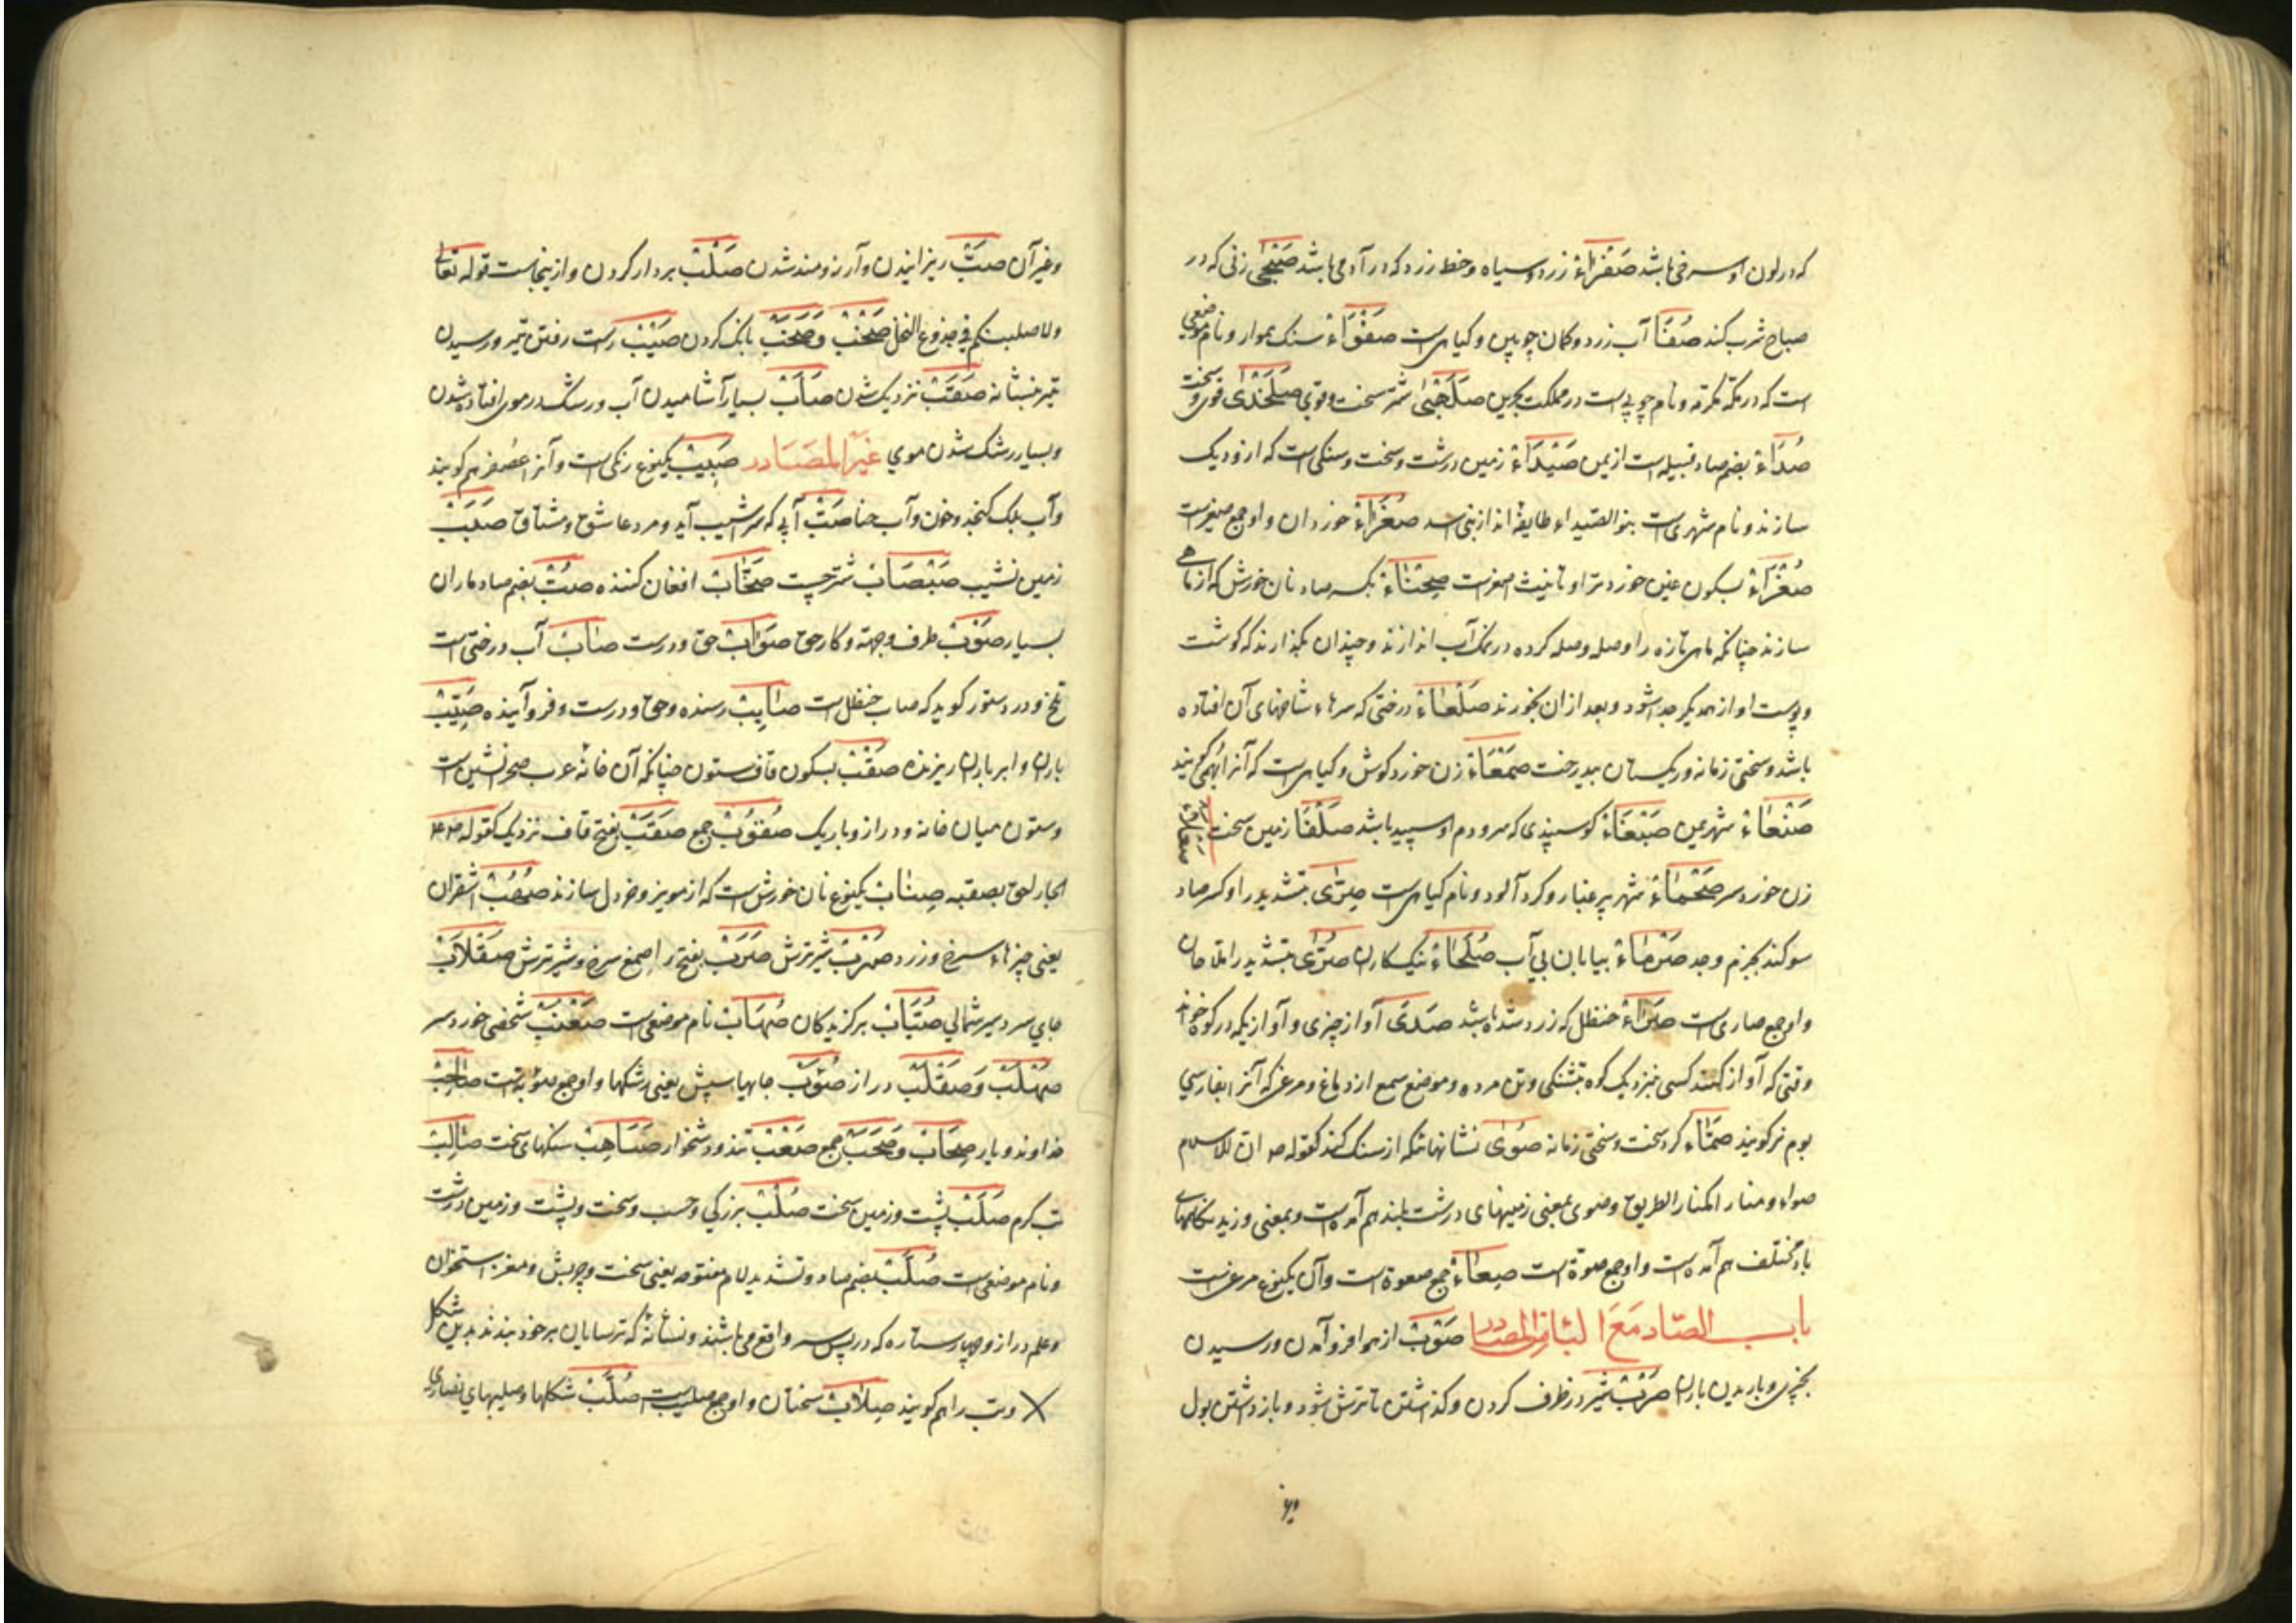 که در لون او سرخی باشد صَفْرَاءُ زرد و سیاه و خط زرد که در آدمی باشد صَبْحٰی زنی که در
صباح شرب کند صُفَا آب زرد و کمان چوبین و کیاهی است صَفْوَاءُ سنک هموار و نام موضعی
است که در مکه مکرمه و نام چوبی است در مملکت بحرین صَلَخْدٰی شتر سخت و قوی صَلَخْدٰی قوی و سخت
صُدَاءُ بضم صاد قبیله است از یمن صَیْدَاءُ زمین درشت و سخت و سنکی است که ازو دیک
سازند و نام شهری است بنو الصیداء طایفه اند از بنی اسد صُغَرَاءُ خوردان و او جمع صغیر است
صُغْرَاءُ بسکون غین خوردتر او تانیث اصغر است صِحْنَاءُ بکسر صاد نان خورش که از ماهی
سازند چنانکه ماهی تازه را وصله وصله کرده در نمک آب اندازند و چندان بکذارند که کوشت
و پوست او از همدیکر جدا شود و بعد از ان بخورند صَلْعَاءُ درختی که سرهاء شاخهای آن افتاده
باشد و سختی زمانه و ریکستان بیدرخت صَمْعَاءُ زن خورد کوش و کیاهی است که آنرا بهمی کویند
صَنْعَاءُ شهر یمن صَبْغَاءُ کوسپندی که سر و دم او سپید باشد صَلْفَا زمین سخت صَقْلَاءُ
زن خورد سر صَحْمَاءُ شهر پر غبار و کرد آلود و نام کیاهی است صِرّٰی بتشدید را و کسر صاد
سوکند بجزم و جد صَرْمَاءُ بیابان بی آب صُلَحَاءُ نیکیکاران صُرّٰی بتشدید را ملاحان
و او جمع صاری است صَرَاءُ حنظل که زرد شده باشد صَدَی آواز چیزی و آوازیکه در کوه خواند
وقتی که آواز کند کسی نزدیک کوه و تشنکی و تن مرده و موضع سمع از دماغ و مرغی که آنرا بفارسی
بوم نر کویند صَمَّاء کر و سخت و سختی زمانه صُوٰی نشانهائیکه از سنک کنند کقوله ص ان للاسلام
صواء و منارا کمنار الطریق و صوی بمعنی زمینهای درشت بلند هم آمده است و بمعنی وزیدنکاههای
باد مختلف هم آمده است و او جمع صوة است صِعَاءُ جمع صعوة است و آن یکنوع مرغیست
باب الصاد مَعَ البَاء من المصَادر صَوْبْ از هوا فرو آمدن و رسیدن
بچیزی و باریدن باران صَرْبْ شیر در ظرف کردن و کذاشتن تا ترش شود و باز داشتن بول
وغ
وغیر آن صَبّ ریزانیدن و آرزومند شدن صَلْبْ بردار کردن و ازینجاست قوله تعالی
ولاصلبنکم فی جذوع النخل صَخَبْ وَ صَحَبْ بانک کردن صَیْبْ راست رفتن تیر و رسیدن
تیر بنشانه صَقَبْ نزدیک شدن صَأَبْ بسیار آشامیدن آب و رشک در موی افتاده شدن
و بسیار رشک شدن موی غَیْر المصَادر صَبِیْبْ یکنوع رنکی است و آنرا عصفر هم کویند
و آب برک کنجد و خون و آب حنا صَبّ آبی که سر اشیب آید و مرد عاشق و مشتاق صَبَبْ
زمین نشیب صَبْصَابْ شتر چست صَخَّابْ افغان کننده صُبّ بضم صاد باران
بسیار صَوْبْ طرف و جهة و کار حق صَوَابْ حق و درست صَابْ آب درختی است
تلخ و در دستور کوید که صاب حنظل است صَایِبْ رسنده و حق و درست و فرو آینده صَیِّبْ
باران و ابر باران ریزنده صَقْبْ بسکون قاف ستون چنانکه آن خانه عرب صحرانشین است
و ستون میان خانه و دراز و باریک صُقُوبْ جمع صَقَبْ بفتح قاف نزدیک کقوله ص
الجار احق بصقبه صِنَابْ یکنوع نان خورش است که از مویز و خردل سازند صُهْبْ اشقران
یعنی چیزهاء سرخ و زرد صَرْبْ شیر ترش صَرَبْ بفتح را صمغ سرخ و شیر ترش صَقْلَابْ
جای سردسیر شمالی صُیَّابْ برکزیدکان صُهَابْ نام موضعی است صَعْنَبْ شخصی خورد سر
صَهْلَبْ وَ صَقْلَبْ دراز صُؤَبْ جابهای سپش یعنی رشکها و او جمع صؤبه است صَاحِبْ
خداوند و یار صِحَابْ وَ صَحَبْ جمع صَعْبْ تند و دشخوار صَیَاهِبْ سنکهای سخت صَالِبْ
تب کرم صَلَبْ پشت و زمین سخت صُلْبْ بزرکی و حسب و سخت و پشت و زمین درشت
و نام موضعی است صُلَّبْ بضم صاد و تشدید لام مفتوحه یعنی سخت و چربش و مغز استخوان
و علم دراز و چهار ستاره که در پس نسر واقع می باشند و نشانه که ترسایان بر خود بندند بدین شکل
X و تب را هم کویند صِلَابْ سختان و او جمع صلیب است صُلُبْ شکلها و صلیبهای نصاری